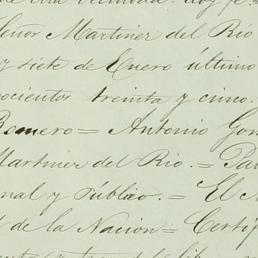 Señor Martinez del Rio
y siete de Enero último
ocientos treinta y cinco.
Romero = Antonio Gon
Martinez del Rio. = Pa
onal y Público. = El
de la Nacion = Certif